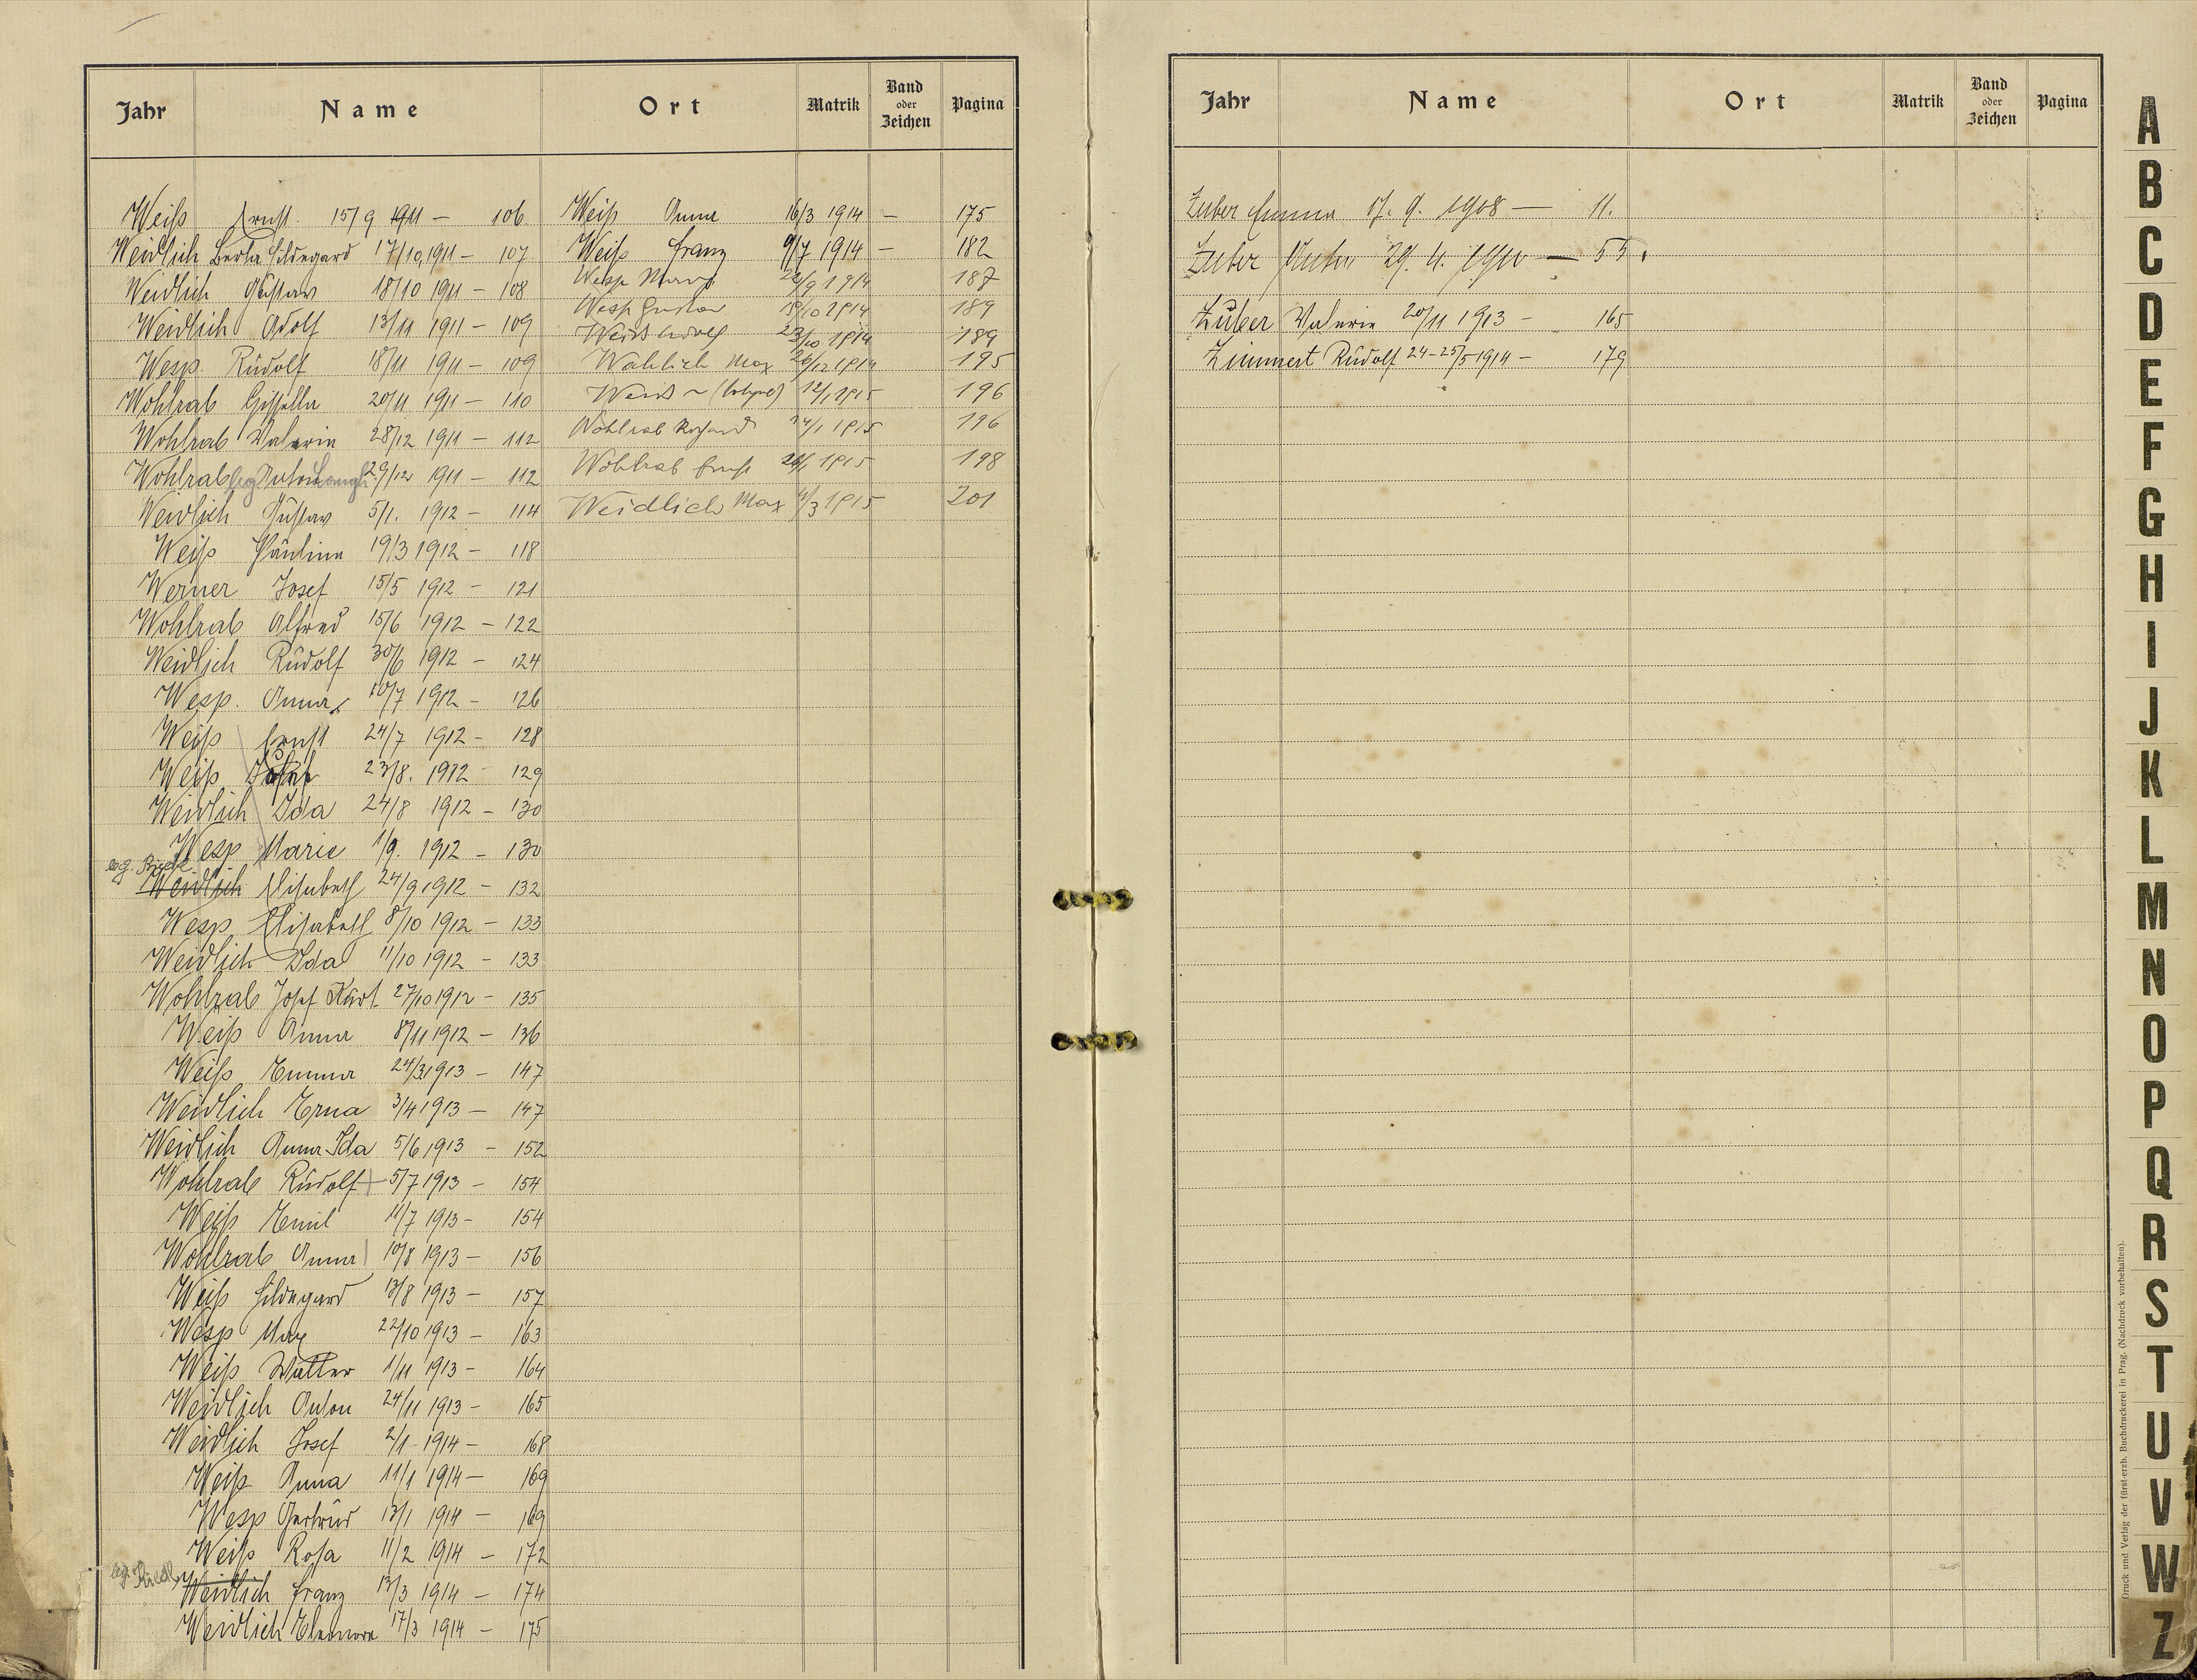 Jahr Name Ort Matrik Band oder Zeichen Pagina
Weiß Ernst 15/9 1911 — 106
Weidlich Berta Hildegard 17/10 1911 — 107
Weidlich Gustav 18/10 1911 — 108
Weidlich Adolf 13/11 1911 — 109
Wesp Rudolf 18/11 1911 — 109
Wohlrab Gisella 20/11 1911 — 110
Wohlrab Valerie 28/12 1911 — 112
Wohlrab leg Anton 29/12 1911 — 112
Weidlich Gustav 5/1. 1912 — 114
Weiß Paulina 19/3 1912 — 118
Werner Josef 15/5 1912 — 121
Wohlrab Alfred 15/6 1912 — 122
Weidlich Rudolf 30/6 1912 — 124
Wesp. Anna 10/7 1912 — 126
Weiß Ernst 24/7 1912 — 128
Weiß 23/8. 1912 129
Weidlich Ida 24/8 1912 — 130
Wesp Marie 1/9. 1912 — 130
leg. Riedl
Weidlich Elisabeth 24/9 1912 — 132
Wesp Elisabeth 8/10 1912 — 133
Weidlich Ida 11/10 1912 — 133
Wohlrab Josef Kurt 27/10 1912 — 135
Weiß Anna 8/11 1912 — 136
Weiß Emma 24/3 1913 — 147
Weidlich Erna 3/4 1913 — 147
Weidlich Anna Ida 5/6 1913 — 152
Wohlrab Rudolf 5/7 1913 — 154
Weiß Emil 11/7 1913 — 154
Wohlrab Anna 10/8 1913 — 156
Weiß Hildegard 13/8 1913 — 157
Wesp Max 22/10 1913 — 163
Weiß Walter 1/11 1913 — 164
Weidlich Anton 24/11 1913 — 165
Weidlich Josef 2/1 1914 — 168
Weiß Anna 11/1 1914 — 169
Wesp Gertrud 13/1 1914 — 169
Weiß Rosa 11/2 1914 — 172
leg. Riedl
Weidlich Franz 13/3 1914 — 174
Weidlich Eleonora 17/3 1914 — 175
Weiß Anna 16/3 1914 — 175
Weiß Franz 9/7 1914 — 182
Wesp 22/9 1914 187
Wesp Gustav 18/10 1914 189
Weiß Adolf 23/10 1914 189
Wahlich Max 26/12 1914 195
Weiß 12/1 1915 196
Wohlrab Richard 14/1 1915 196
Wohlrab Ernst 26/1 1915 198
Weidlich Max 4/3 1915 201
Jahr Name Ort Matrik Band oder Zeichen Pagina
Zuber Emma 17. 9. 1908 — 11.
Zuber Anton 29. 4. 1910 — 55.
Zuber Valerie 20/11 1913 — 165
Zimmert Rudolf 24-25/5 1914 — 179
A
B
C
D
E
F
G
H
I
J
K
L
M
N
O
P
Q
R
S
T
U
V
W
Z
Druck und Verlag der fürst-erzb. Buchdruckerei in Prag. (Nachdruck vorbehalten).